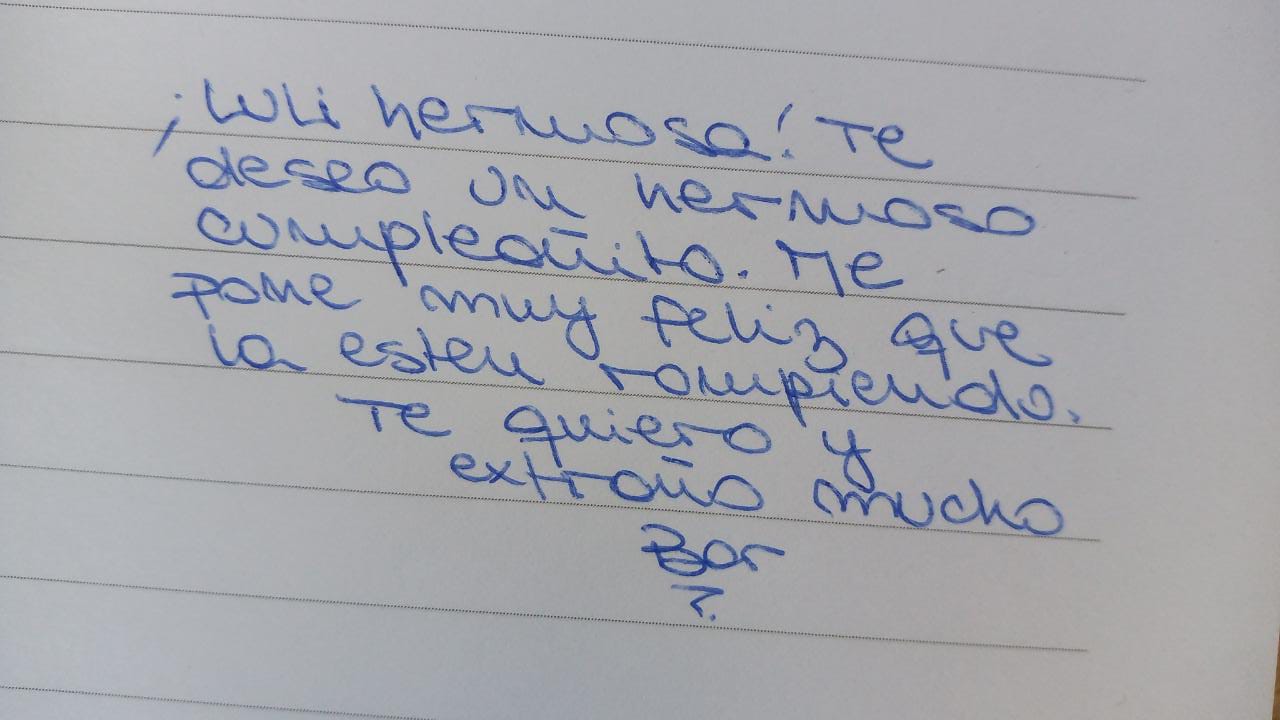 ¡Luli hermosa! Te
deseo un hermoso
cumpleañito. Me
pone muy feliz que
la esten rompiendo.
Te quiero y
extraño mucho
Bar